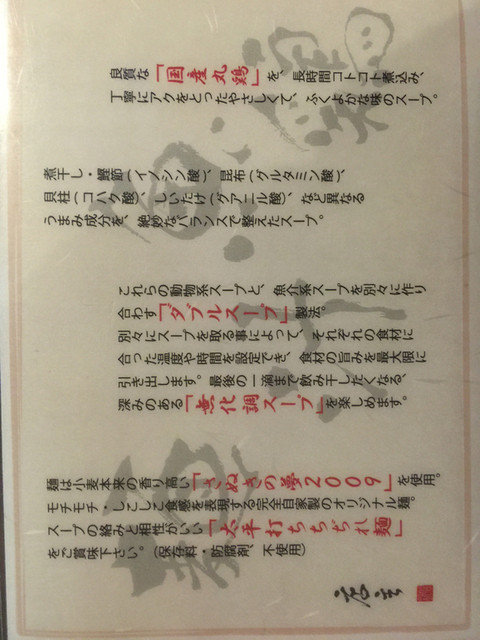 良質な「国産丸鶏」を、長時間コトコト煮込み、
丁寧にアクをとったやさしくて、ふくよかな味のスープ。
煮干し・鰹節(イノシン酸)、昆布(グルタミン酸)、
貝柱(コハク酸)、しいたけ(グアニール酸)、など異なる
うまみ成分を、絶妙なバランスで整えたスープ。
これらの動物系スープと、魚介系スープを別々に作り
合わす「ダブルスープ」製法。
別々にスープを取る事によって、それぞれの食材に
合った温度や時間を設定でき、食材の旨みを最大限に
引き出します。最後の一滴まで飲み干したくなる、
深みのある「無化調スープ」を楽しめます。
麺は小麦本来の香り高い「さぬきの夢2009」を使用。
モチモチ・しこしこ食感を表現する完全自家製のオリジナル麺。
スープの絡みと相性がいい「太平打ちちぢれ麺」
をご賞味下さい。(保存料・防腐剤、不使用)
店主